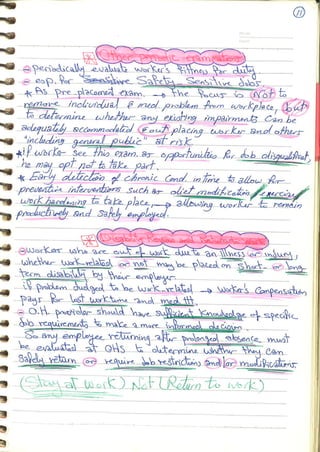 11
* Other periodic examinations
periodically evaluate worker's Fitness for duty
esp. for Sensitive Safety Sensitive Jobs.
* As pre placement exam. → the focus is Not to
remove individual & med. problem from workplace, but
to determine whether any existing impairments can be
adequately accommodated & out placing worker and others
"including general public" at risk
* if worker see this exam. as opportunities for job disqualificat.
he may opt not to take part.
* Early detection of chronic cond. in time to allow for
preventive interventions such as diet modification, exercise,
work hardening to take place, → allowing worker to remain
productively and safely employed.
*
worker who are out of work due to an illness or injury,
whether work related or not may be placed on short or long
term disability by their employer
if problem judged to be work related → worker's Compensation
pays for lost work time and med. ttt.
O.H. provider should have sufficient knowledge of specific
job requirements to make a more informed decision.
So any employee returning after prolonged absence must
be evaluated at OHS to determine whether they can
safely return or require job restrictions and/or modifications.
(Stay at work) Not (Return to work)